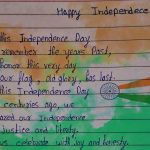 Happy Independece
this Independence Day
remember the years Past,
honor this very day
our flag, old glory, has last.
centuries ago, we
our Independence
Justice and liberty.
us celebrate with joy and honesty.